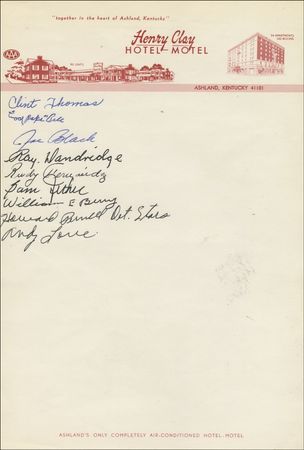 "together in the heart of Ashland, Kentucky"
AAA
Henry Clay
HOTEL-MOTEL
ASHLAND, KENTUCKY 41101
Clint Thomas
Cool Papa Bell
Joe Black
Ray Dandridge
Rudy Fernandez
Sam
William E Berry
Howard Det. Stars
Andy Love
ASHLAND'S ONLY COMPLETELY AIR-CONDITIONED HOTEL MOTEL